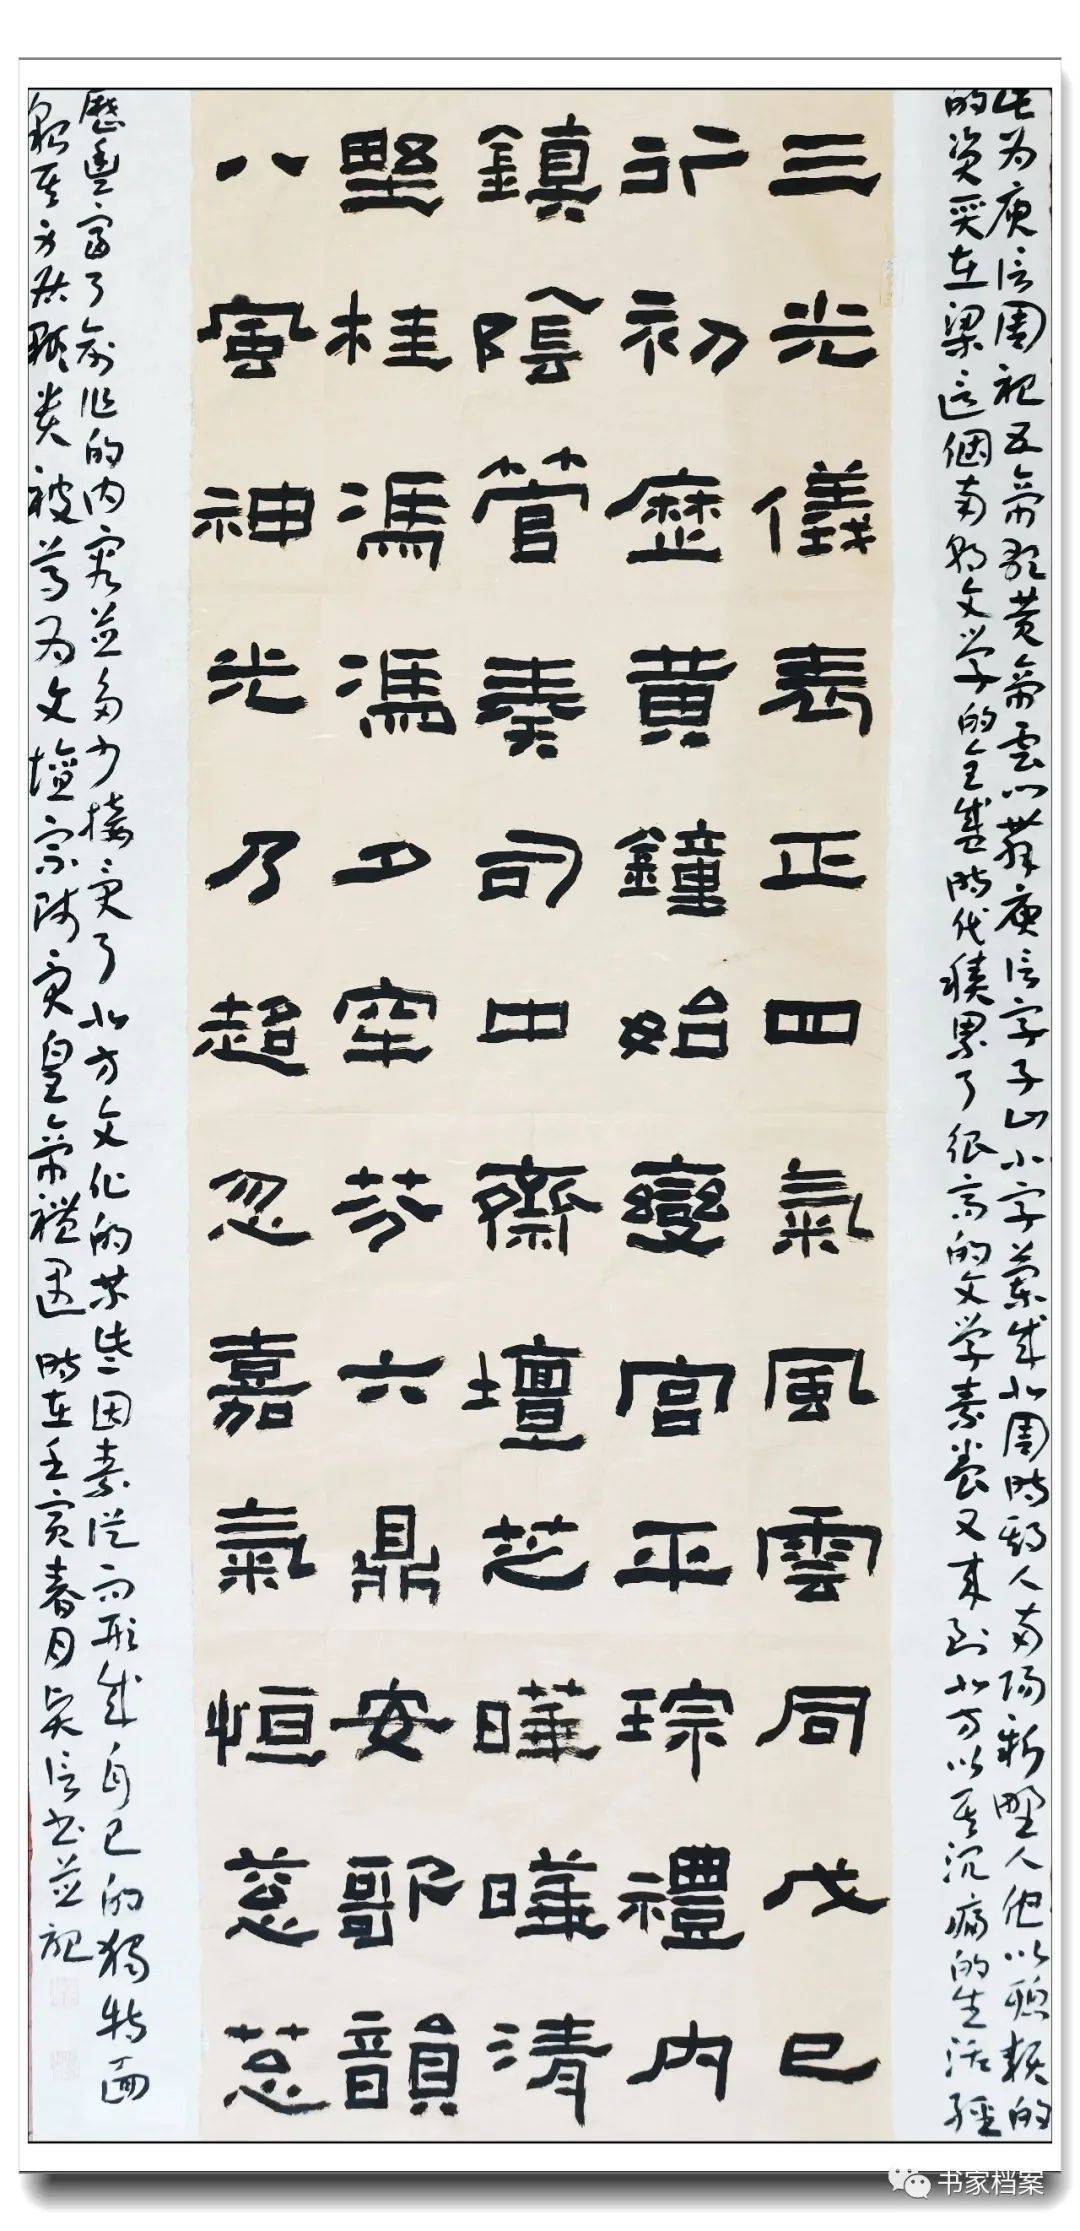 此为庾信周祀五帝歌黄帝雲门舞庾信字子山小字蘭成北周時期人南陽新野人他以聰颖的
的资质在梁這個南朝文学的全盛時代積累了很高的文学素養又来到北方以其沉痛的生活經
三光儀表正四氣風雲同戊己
行初歷黄鐘始變宮平琮禮内
鎮陰管奏司中齋壇芝曄曄清
野桂馮馮夕牢芬六鼎安歌韻
八風神光乃超忽嘉氣恒蔥蔥
歷豐富了創作的内容並多少接受了北方文化的某些因素從而形成自己的獨特面
貌被尊为文壇宗师受皇帝禮遇 時在壬寅春月吴信书並記
书家档案